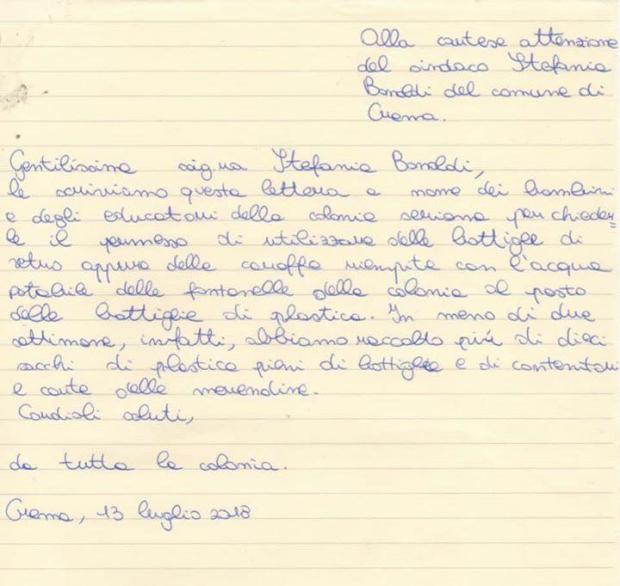 Alla cortese attenzione
del sindaco Stefania
Bonaldi del comune di
Crema.
Gentilissima sig.ra Stefania Bonaldi,
le scriviamo questa lettera a nome dei bambini
e degli educatori della colonia seriana per chieder=
le il permesso di utilizzare delle bottiglie di
vetro oppure delle caraffe riempite con l'acqua
potabile delle fontanelle della colonia al posto
delle bottiglie di plastica. In meno di due
settimane, infatti, abbiamo raccolto più di dieci
sacchi di plastica pieni di bottiglie e di contenitori
e carte delle merendine.
Cordiali saluti,
da tutta la colonia.
Crema, 13 luglio 2018